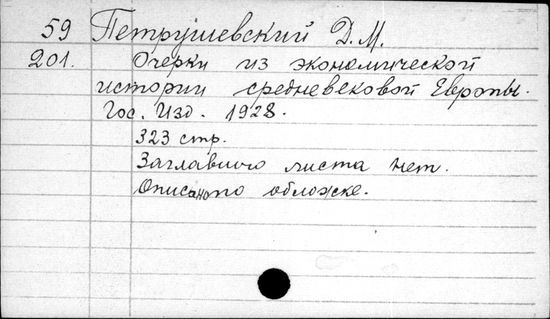 59 Петрушевский Д.М.
201. Очерки из экономической
истории средневековой Европы.
Гос. Изд. 1928.
323 стр.
Заглавного листа нет.
Описано по обложке.